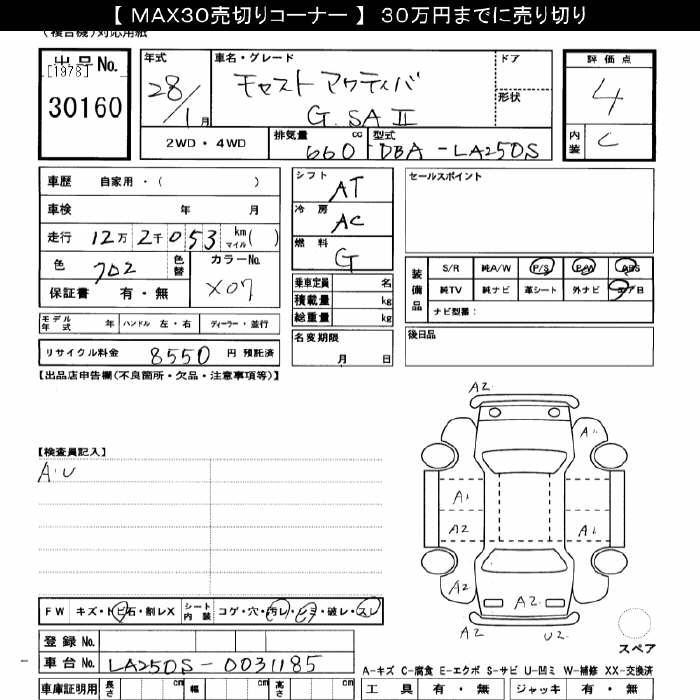 【 MAX30売切りコーナー 】 30万円までに売り切り
(複合機)対応用紙
出品No.
[1978]
30160
年式
28/1月
車名・グレード
キャスト アクティバ
G. SA II
ドア
形状
評価点
4
内装
C
2WD・4WD
排気量
660 cc
型式
DBA-LA250S
車歴 自家用・( )
車検 年 月
走行 12万2千053 km マイル( )
色 クロ2
色替
カラーNo.
X07
保証書 有・無
シフト AT
冷房 AC
燃料 G
乗車定員 名
積載量 kg
総重量 kg
セールスポイント
装備品
S/R 純A/W P/S P/W ABS
純TV 純ナビ 革シート 外ナビ エアB
ナビ型番:
モデル年式 年 ハンドル 左・右 ディーラー・並行
名変期限
月 日
後日品
リサイクル料金 8550 円 預託済
【出品店申告欄(不良箇所・欠品・注意事項等)】
【検査員記入】
A・U
A2
A1
A1
A2
A1
A2
A2
A2
A2
U2
スペア
FW キズ・トビ石・割レX
シート内装 コゲ・穴・汚レ・シミ・破レ・スレ
登録No.
車台No. LA250S-0031185
A-キズ C-腐食 E-エクボ S-サビ U-凹ミ W-補修 XX-交換済
車庫証明用 長さ cm 幅 cm 高さ cm
工具 有・無 ジャッキ 有・無